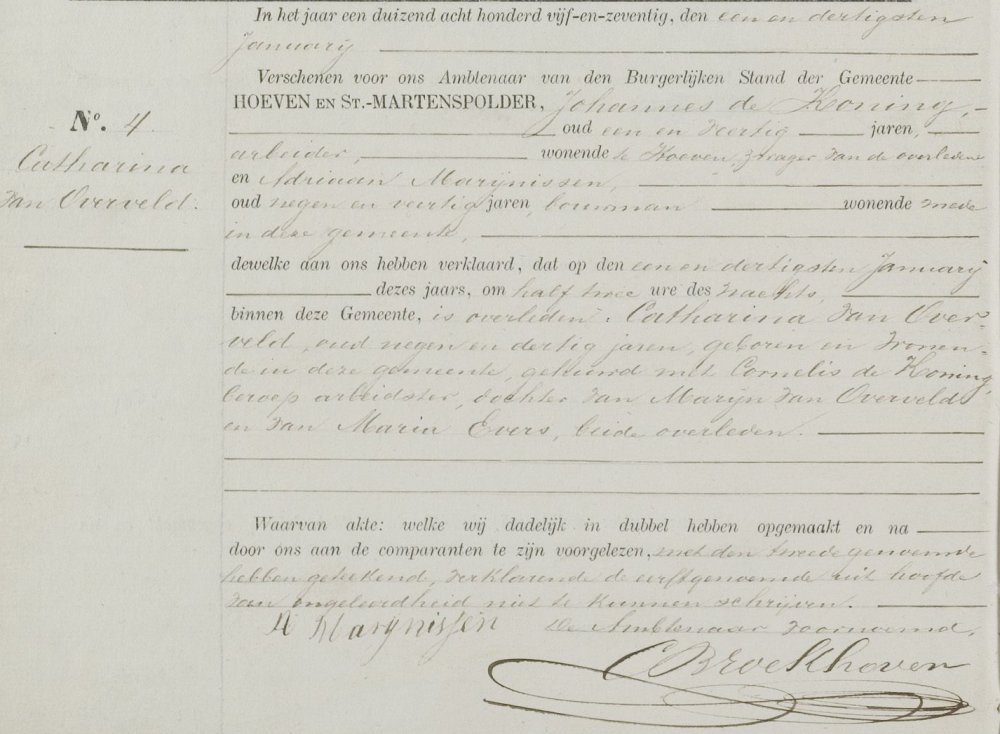 In het jaar een duizend acht honderd vijf-en-zeventig, den een en dertigsten
January
Verschenen voor ons Ambtenaar van den Burgerlijken Stand der Gemeente
HOEVEN EN ST.-MARTENSPOLDER, Johannes de Koning,
oud een en veertig jaren,
arbeider, wonende te Hoeven, zwager van de overledene
en Adriaan Marijnissen,
oud negen en veertig jaren, bouwman wonende mede
in deze gemeente,
dewelke aan ons hebben verklaard, dat op den een en dertigsten January
dezes jaars, om half twee ure des nachts,
binnen deze Gemeente, is overleden: Catharina van Over-
veld, oud negen en dertig jaren, geboren en wonen-
de in deze gemeente, gehuwd met Cornelis de Koning,
beroep arbeidster, dochter van Marijn van Overveld
en van Maria Evers, beide overleden.
Waarvan akte: welke wij dadelijk in dubbel hebben opgemaakt en na
door ons aan de comparanten te zijn voorgelezen, met den tweede genoemde
hebben geteekend, verklarende de eerstgenoemde uit hoofde
van ongeleerdheid niet te kunnen schrijven.
A Marynissen De Ambtenaar voornoemd,
C Broekhoven
No. 4
Catharina
van Overveld.